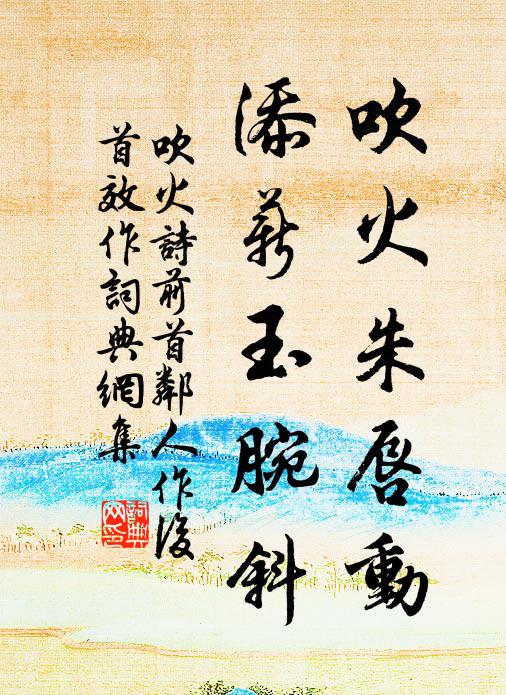 吹火朱唇動
添薪玉腕斜
吹火詩前首鄰人作後
首效作詞典網集
詞典
网印